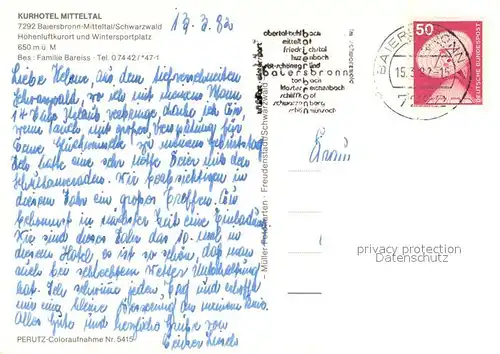 KURHOTEL MITTELTAL
7292 Baiersbronn-Mitteltal/Schwarzwald
Höhenluftkurort und Wintersportplatz
650 m ü. M
Bes.: Familie Bareiss · Tel. 07442/*47-1
13.3.82
Liebe Helene, aus dem tiefverschneiten
Schwarzwald, wo ich mit meinem Mann
14 Tage Urlaub verbringe, danke ich Dir,
wenn auch mit großer Verspätung für
Deine Glückwünsche zu meinem Geburtstag.
Ich hatte eine sehr nette Feier mit den
Wir beabsichtigen in
diesem Jahr ein großes Treffen. Du
bekommst in nächster Zeit eine Einladung.
Wir sind dieses Jahr das 10. mal in
diesem Hotel, es ist so schön, daß man
auch bei schlechtem Wetter Unterhaltung
hat. Ich schwimme jeden Tag und erhoffe
mir eine kleine Besserung an meinem
Alles Gute und herzliche Grüße von
PERUTZ-Coloraufnahme Nr. 5415
Freudenstadt/Schwarzwald
obertal buhlbach
mitteltal
friedrichstal
huzenbach
baiersbronn
tonbach
klosterreichenbach
schwarzenberg
BAIERSBRONN
15.3.82-15
7292
50
DEUTSCHE BUNDESPOST
Frau
privacy protection
Datenschutz